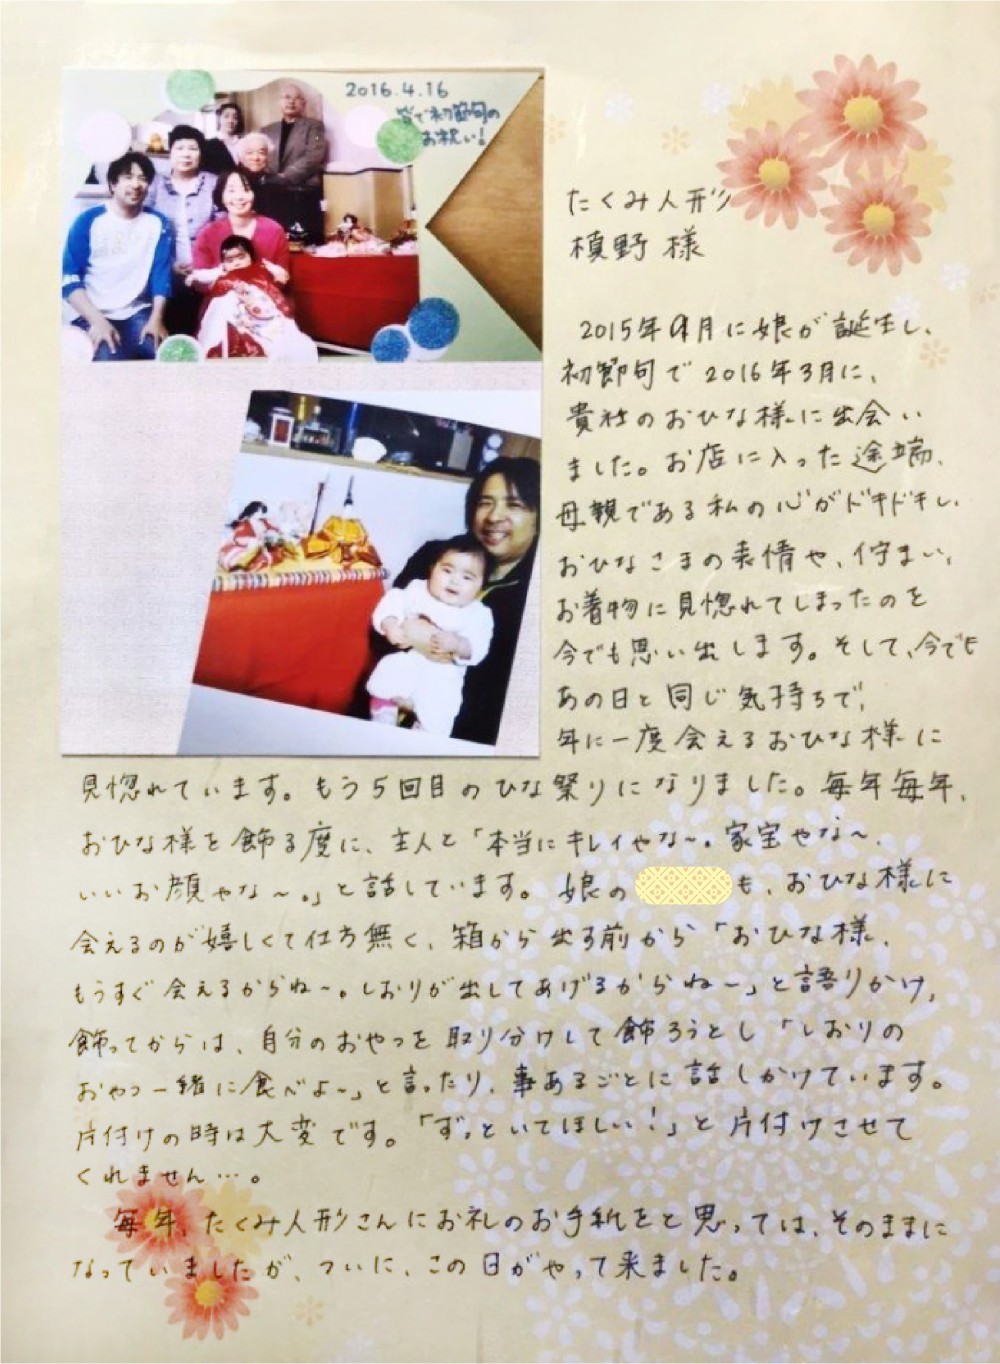 2016.4.16
皆で初節句の
お祝い!
たくみ人形
槙野 様
2015年9月に娘が誕生し、
初節句で2016年3月に、
貴社のおひな様に出会い
ました。お店に入った途端、
母親である私の心がドキドキし、
おひなさまの表情や、佇まい、
お着物に見惚れてしまったのを
今でも思い出します。そして、今でも
あの日と同じ気持ちで、
年に一度会えるおひな様に
見惚れています。もう5回目のひな祭りになりました。毎年毎年、
おひな様を飾る度に、主人と「本当にキレイやな〜。家宝やな〜、
いいお顔やな〜。」と話しています。娘の も、おひな様に
会えるのが嬉しくて仕方無く、箱から出す前から「おひな様、
もうすぐ会えるからね〜。しおりが出してあげるからね〜」と語りかけ、
飾ってからは、自分のおやつを取り分けして飾ろうとし「しおりの
おやつ一緒に食べよ〜」と言ったり、事あるごとに話しかけています。
片付けの時は大変です。「ずっといてほしい!」と片付けさせて
くれません…。
毎年、たくみ人形さんにお礼のお手紙をと思っては、そのままに
なっていましたが、ついに、この日がやって来ました。